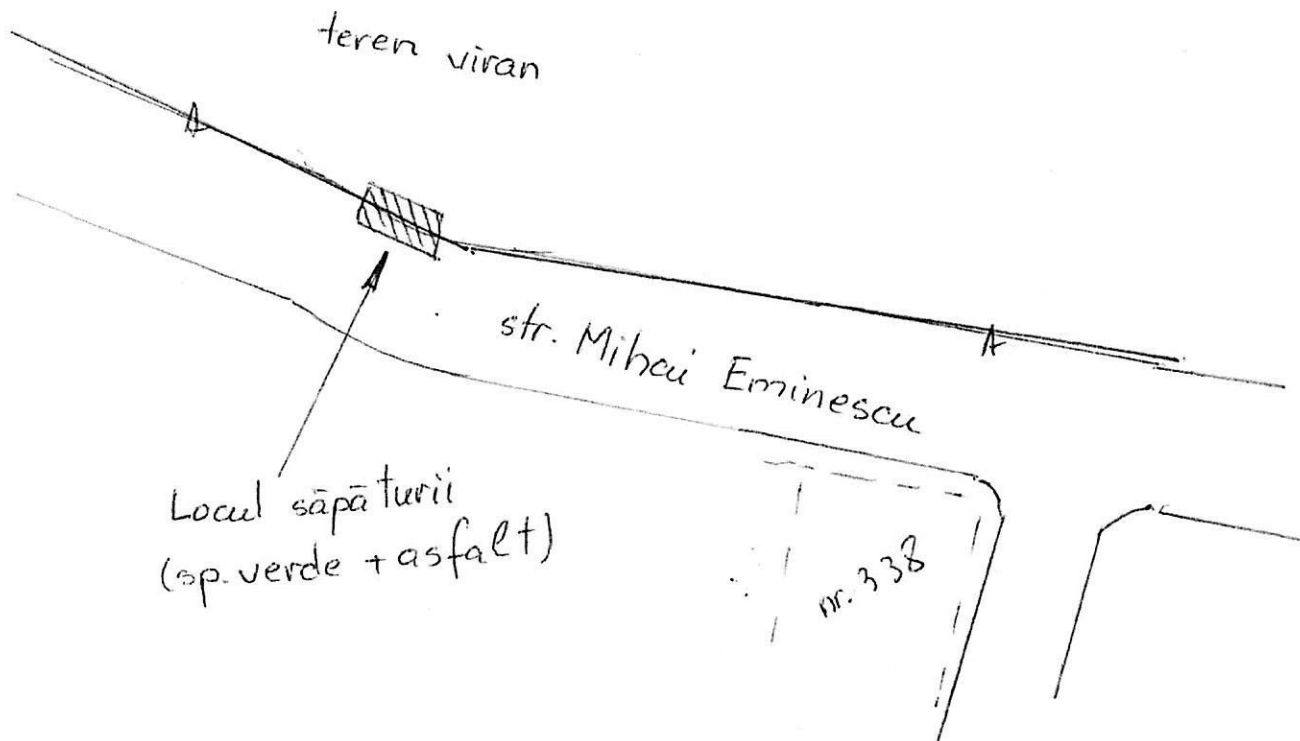 teren viran
str. Mihai Eminescu
Locul săpăturii
(sp. verde + asfalt)
nr. 338